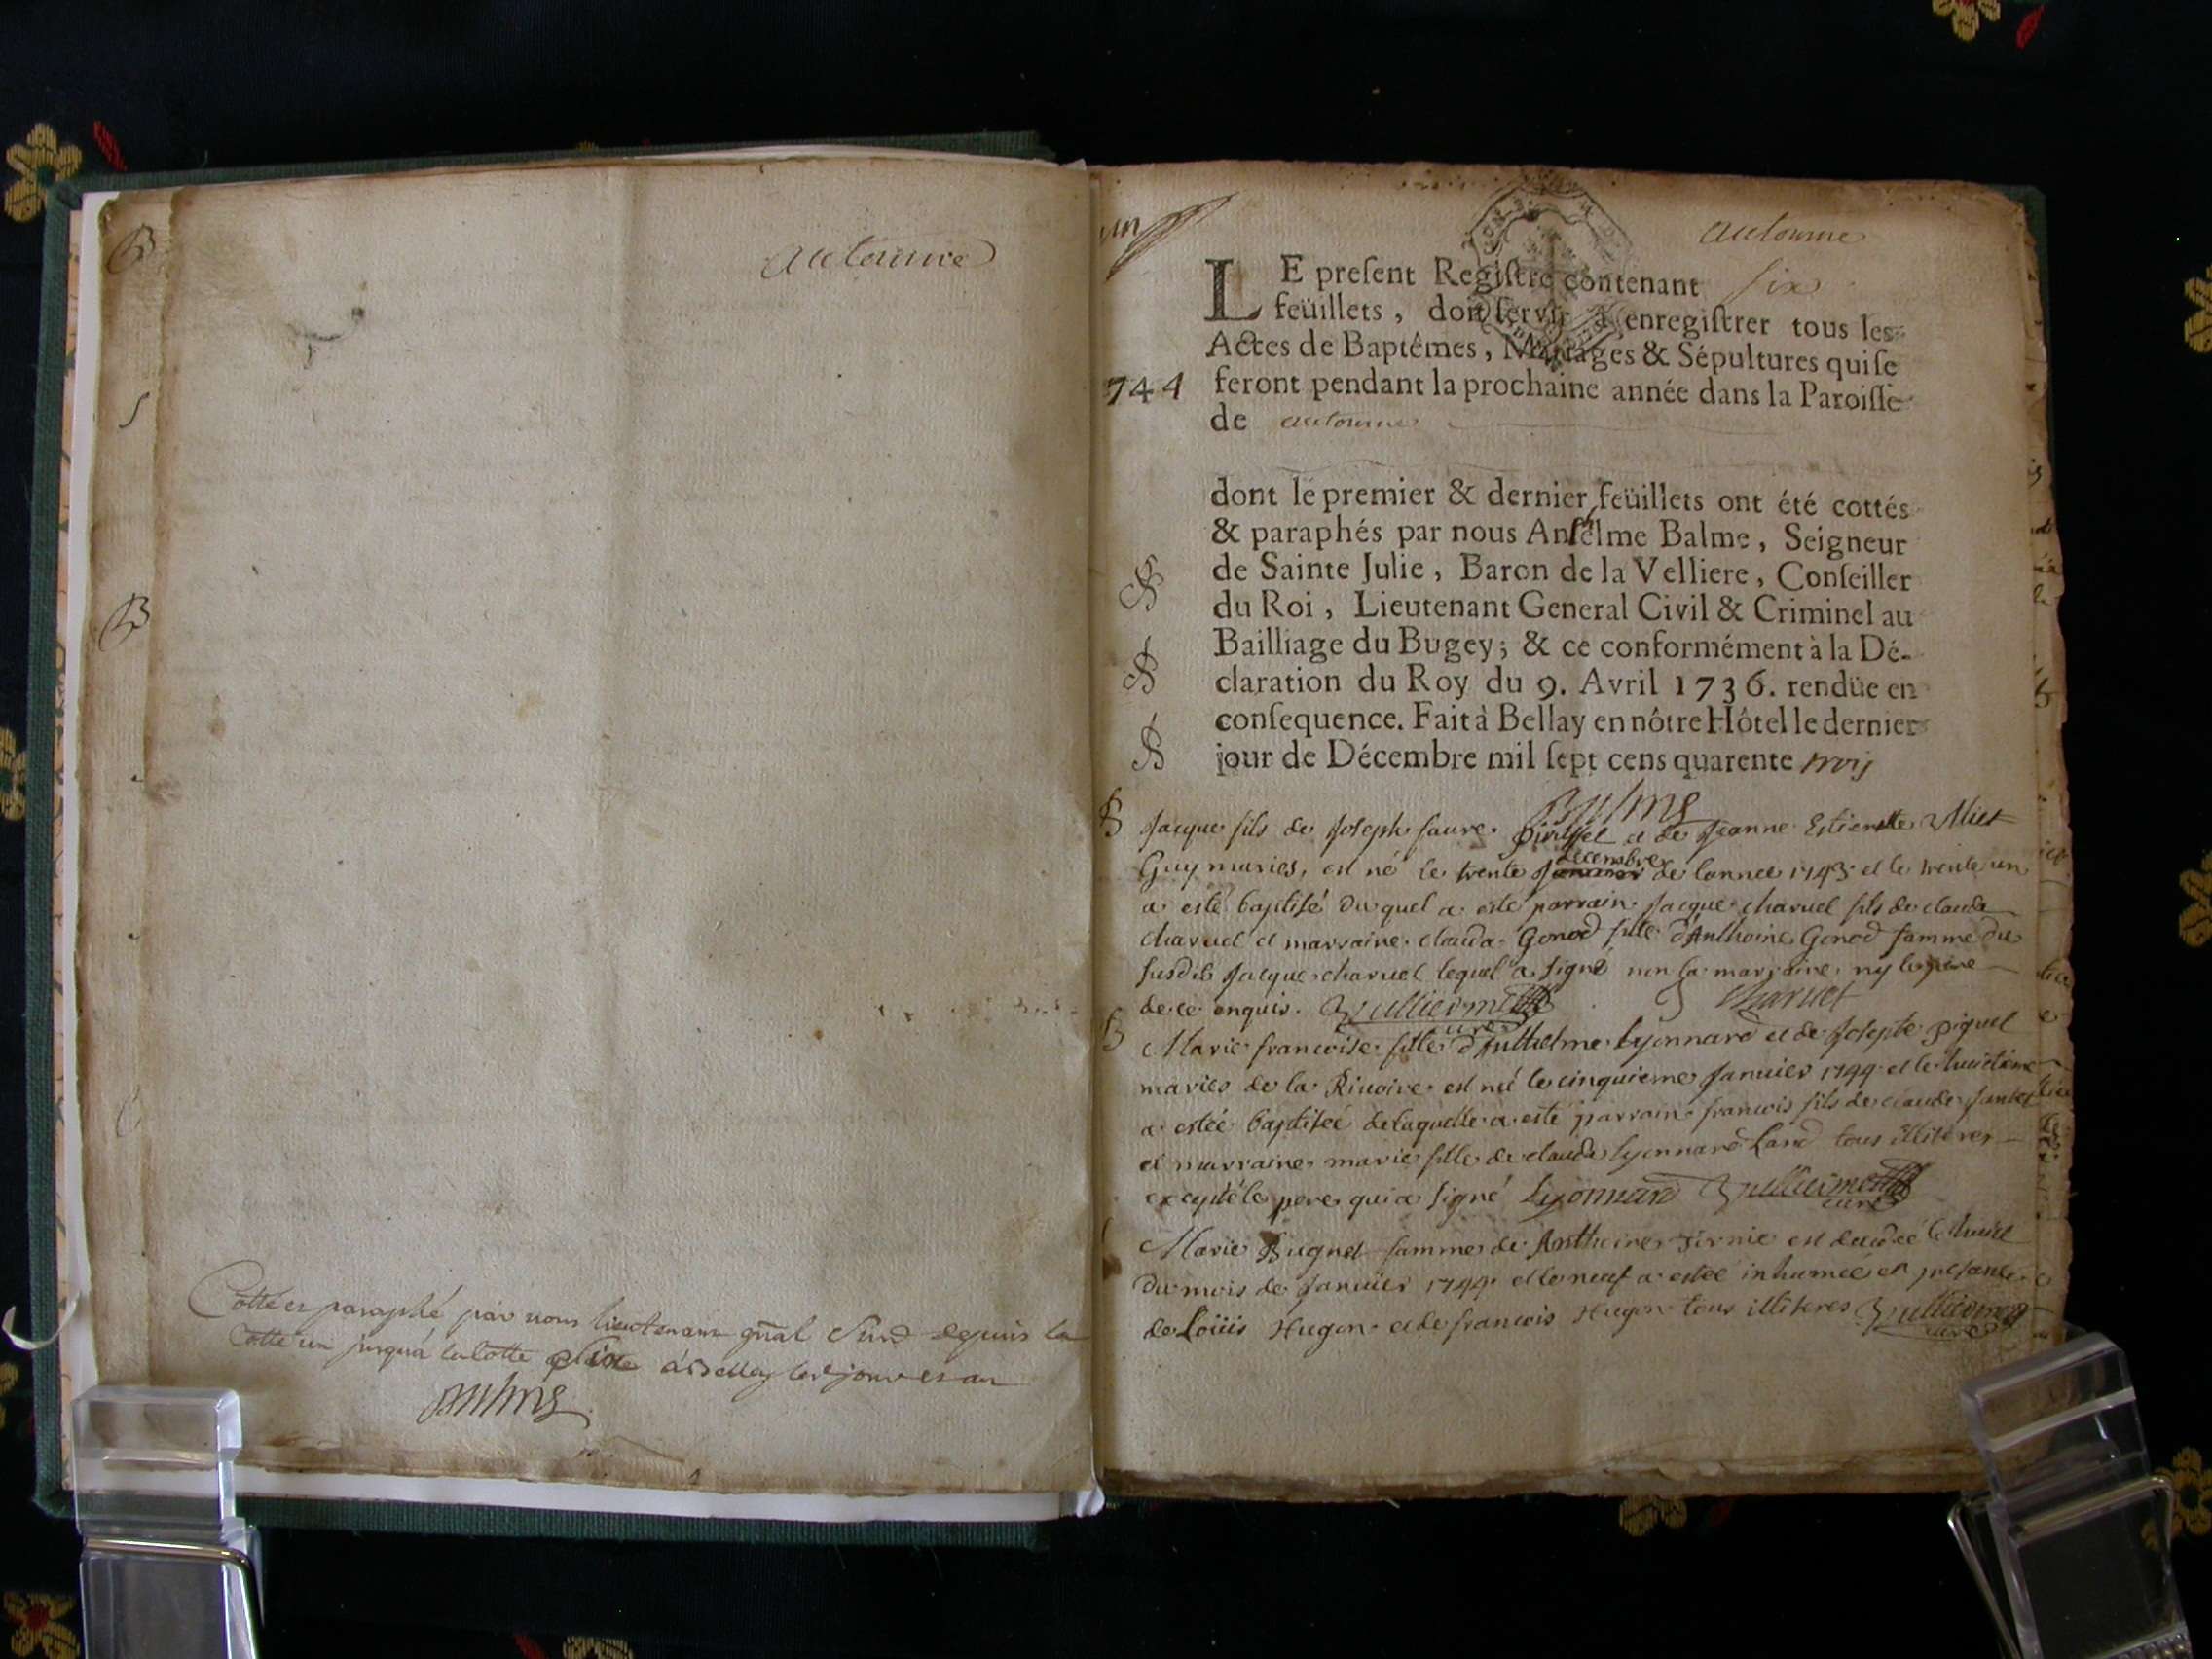 autonne
Cotté et paraphé par nous lieutenant gñal Surd depuis la
Cotte un jusqu'a la cotte Sixe a Bellay les jour et an
Balme
un
autonne
LE preſent Regiſtre contenant six
feüillets, doit ſervir à enregiſtrer tous les
Actes de Baptêmes, Mariages & Sépultures qui ſe
744 feront pendant la prochaine année dans la Paroiſſe
de autonne
dont le premier & dernier feüillets ont été cottés
& paraphés par nous Anſelme Balme, Seigneur
de Sainte Julie, Baron de la Velliere, Conſeiller
du Roi, Lieutenant General Civil & Criminel au
Bailliage du Bugey; & ce conformément à la Dé-
claration du Roy du 9. Avril 1736. rendüe en
conſequence. Fait à Bellay en nôtre Hôtel le dernier
jour de Décembre mil ſept cens quarente trois
Balme
B Jacque fils de Joseph faure et de Jeanne Estiennette
Guy maries, est né le trente decembre de lannee 1743 et le trente un
a esté baptisé du quel a esté parrain Jacque charvet fils de claude
charvet et marraine clauda Gonod fille d'Anthoine Gonod famme du
susdit Jacque charvet lequel a signé non la marraine ny le pere
de ce enquis. Vulliermet curé charvet
B Marie francoise fille d'Anthelme Lyonnard et de Josepte piguet
maries de la Rivoire est né le cinquieme Janvier 1744 et le huictieme
a estée baptisée de laquelle a esté parrain francois fils de claude
et marraine marie fille de claude lyonnard Land tous illiteres
excepté le pere qui a signé Lyonnard Vulliermet curé
Marie Bugnet famme de Anthoine est decedée le huict
du mois de Janvier 1744 et le neuf a estée inhumée en presance
de Loüis Hugon et de francois Hugon tous illiteres Vulliermet
curé